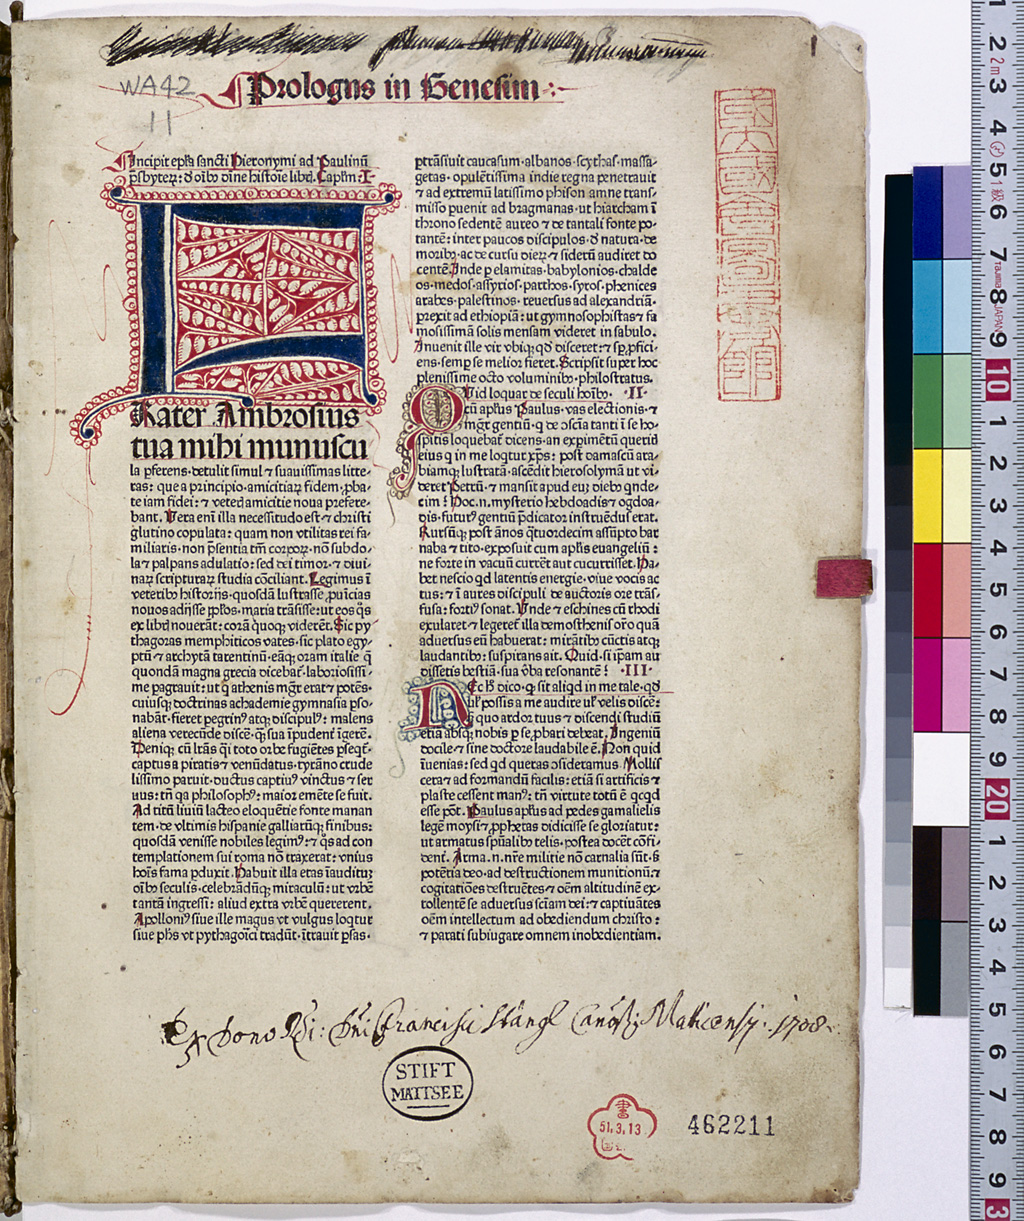 WA42
11
Prologus in Genesim
Incipit epl̃a sancti Hieronymi ad Paulinũ
p̃sbyteꝝ: d̓ oĩbꝰ diuine historie libris. Capl̃m .I.
FRater Ambrosius
tua mihi munuscu
la ꝑferens· detulit simul ⁊ suauissimas litte-
ras: que a principio·amicitiaꝝ fidem·ꝓba-
te iam fidei: ⁊ veteꝝ amicitie noua prefere-
bant. Uera em̃ illa necessitudo est·⁊ christi
glutino copulata: quam non vtilitas rei fa-
miliaris· non p̃sentia tm̃ corpoꝝ· nõ subdo-
la ⁊ palpans adulatio: sed dei timor·⁊ diui-
naꝝ scripturaꝝ studia cõciliant. Legimus ĩ
veteribꝰ historijs· quosdã lustrasse ꝓuĩcias
nouos adijsse pp̃los· maria trãsisse: ut eos q̃s
ex libris nouerãt: corã quoqꝫ viderẽt. Sic py-
thagoras memphiticos vates· sic plato egy-
ptũ ⁊ archytã tarentinũ· eãqꝫ oram italie q̃
quondã magna grecia dicebat̃· laboriosissi-
me pagrauit: ut q̃ athenis mgr̃ erat ⁊ potẽs·
cuiusqꝫ doctrinas achademie gymnasia ꝑso-
nabãt· fieret peregrinꝰ atqꝫ discipulꝰ: malens
aliena verecũde discẽ·q̃ sua ĩpudent̃ ĩgerẽ.
Deniqꝫ cũ lr̃as q̃si toto orbe fugiẽtes ꝑseqt̃·
captus a piratis ⁊ venũdatus· tyrãno crude
lissimo paruit· ductus captiuꝰ vinctus ⁊ ser
uus: tñ qa philosophꝰ: maior emẽte se fuit.
Ad titũ liuiũ lacteo eloquẽtie fonte manan
tem· de vltimis hispanie galliarũqꝫ finibus:
quosdã venisse nobiles legimꝰ: ⁊ q̃s ad con
templationem sui roma nõ traxerat: vnius
hoĩs fama ꝑduxit. Habuit illa etas ĩauditũ
oĩbꝰ seculis· celebrãdũqꝫ miraculũ: ut vrbẽ
tantã ingressi: aliud extra vrbẽ quererent.
Apolloniꝰ siue ille magus vt vulgus loqtur
siue phs̃ vt pythagoĩci tradũt·ĩtrauit ꝑsas·
ptrãsiuit caucasum· albanos· scythas· massa-
getas· opulẽtissima indie regna penetrauit
⁊ ad extremũ latissimo phison amne trans-
misso puenit ad bragmanas· ut hiarcham ĩ
throno sedentẽ aureo ⁊ de tantali fonte po-
tantẽ: inter paucos discipulos· d̓ natura· de
moribꝰ· ac de cursu dieꝝ ⁊ siderũ audiret do
centẽ. Inde ꝑ elamitas· babylonios· chalde
os· medos· assyrios· parthos· syros· phenices
arabes· palestinos· reuersus ad alexandriã·
ꝑrexit ad ethiopiã: ut gymnosophistas ⁊ fa
mosissimã solis mensam videret in sabulo.
Inuenit ille vir vbiqꝫ qd̃ disceret: ⁊ sp̃ ꝓfici-
ens· semp se melior fieret. Scripsit suꝑ hoc
plenissime octo voluminibꝰ· philostratus.
QUid loquar de seculi hoĩbꝰ· ·II·
cũ apl̃us Paulus· vas electionis·⁊
mgr̃ gentiũ· q de cõscia tanti ĩ se ho-
spitis loquebat̃ dicens· an exꝑimẽtũ queritis
eius q in me loqtur xp̃s: post damascũ ara-
biamqꝫ lustratã· ascẽdit hierosolymã ut vi-
deret Petrũ·⁊ mansit apud euꝫ diebꝰ qnde-
cim? Hoc .n. mysterio hebdoadis ⁊ ogdoa-
dis· futurꝰ gentiũ p̃dicator instruẽdus erat.
Rursũqꝫ post ãnos q̃tuordecim assũpto bar
naba ⁊ tito· exposuit cum apl̃is euangeliũ:
ne forte in vacuũ currẽt aut cucurrisset. Ha-
bet nescio qd latentis energie· viue vocis ac
tus: ⁊ ĩ aures discipuli de auctoris ore trãs-
fusa: fortiꝰ sonat. Unde ⁊ eschines cũ rhodi
exularet ⁊ legeret̃ illa demosthenis or̃o quã
aduersus eũ habuerat: mirãtibꝰ cũctis atqꝫ
laudantibꝰ: suspirans ait. Quid· si ip̃am au
dissetis bestiã· sua v̓ba resonantẽ? ·III·
NEc h̃ dico·ꝙ sit aliqd in me tale· qd̃
uƚ possis a me audire uƚ velis discẽ:
sꝫ quo ardor tuus ⁊ discendi studiũ
etiã absqꝫ nobis ꝑ se ꝓbari debeat. Ingeniũ
docile·⁊ sine doctore laudabile ẽ. Non quid
ĩuenias: sed qd queras ↄsideramus. Mollis
cera ⁊ ad formandũ facilis: etiã si artificis ⁊
plaste cessent manꝰ: tñ virtute totũ ẽ qcqd
esse põt. Paulus apl̃us ad pedes gamalielis
legẽ moysi ⁊ ꝓphetas didicisse se gloriatur:
ut armatus spũalibꝰ telis· postea docẽt cõfi-
denẽ. Arma .n. nr̃e militie nõ carnalia sũt·sꝫ
potẽtia deo· ad destructionem munitionũ: ⁊
cogitatiões destruẽtes ⁊ oẽm altitudinẽ ex-
tollentẽ se aduersus sciãm dei: ⁊ captiuãtes
oẽm intellectum ad obediendum christo:
⁊ parati subiugare omnem inobedientiam.
Ex dono Rdi: Dni Francisci Stängl Canoĩci Maticensis. 1708.
STIFT
MATTSEE
書
51.3.13
462211